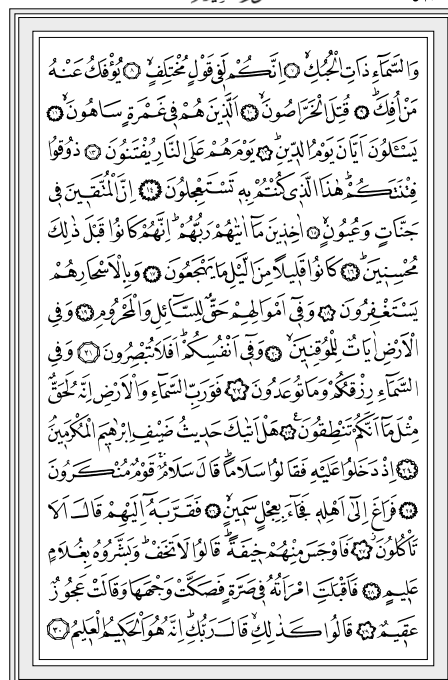 وَالسَّمَاءِ ذَاتِ الْحُبُكِ ﴿٧﴾ اِنَّكُمْ لَفِي قَوْلٍ مُخْتَلِفٍ ﴿٨﴾ يُؤْفَكُ عَنْهُ
مَنْ اُفِكَ ﴿٩﴾ قُتِلَ الْخَرَّاصُونَ ﴿١٠﴾ اَلَّذِينَ هُمْ فِي غَمْرَةٍ سَاهُونَ ﴿١١﴾
يَسْـَٔلُونَ اَيَّانَ يَوْمُ الدِّينِ ﴿١٢﴾ يَوْمَ هُمْ عَلَى النَّارِ يُفْتَنُونَ ﴿١٣﴾ ذُوقُوا
فِتْنَتَكُمْ هٰذَا الَّذِي كُنْتُمْ بِهِ تَسْتَعْجِلُونَ ﴿١٤﴾ اِنَّ الْمُتَّقِينَ فِي
جَنَّاتٍ وَعُيُونٍ ﴿١٥﴾ اٰخِذِينَ مَا اٰتٰيهُمْ رَبُّهُمْ اِنَّهُمْ كَانُوا قَبْلَ ذٰلِكَ
مُحْسِنِينَ ﴿١٦﴾ كَانُوا قَلِيلًا مِنَ الَّيْلِ مَا يَهْجَعُونَ ﴿١٧﴾ وَبِالْاَسْحَارِ هُمْ
يَسْتَغْفِرُونَ ﴿١٨﴾ وَفِي اَمْوَالِهِمْ حَقٌّ لِلسَّائِلِ وَالْمَحْرُومِ ﴿١٩﴾ وَفِي
الْاَرْضِ اٰيَاتٌ لِلْمُوقِنِينَ ﴿٢٠﴾ وَفِي اَنْفُسِكُمْ اَفَلَا تُبْصِرُونَ ﴿٢١﴾ وَفِي
السَّمَاءِ رِزْقُكُمْ وَمَا تُوعَدُونَ ﴿٢٢﴾ فَوَرَبِّ السَّمَاءِ وَالْاَرْضِ اِنَّهُ لَحَقٌّ
مِثْلَ مَا اَنَّكُمْ تَنْطِقُونَ ﴿٢٣﴾ هَلْ اَتٰيكَ حَدِيثُ ضَيْفِ اِبْرٰهِيمَ الْمُكْرَمِينَ
﴿٢٤﴾ اِذْ دَخَلُوا عَلَيْهِ فَقَالُوا سَلَامًا قَالَ سَلَامٌ قَوْمٌ مُنْكَرُونَ
﴿٢٥﴾ فَرَاغَ اِلٰى اَهْلِهِ فَجَاءَ بِعِجْلٍ سَمِينٍ ﴿٢٦﴾ فَقَرَّبَهُ اِلَيْهِمْ قَالَ اَلَا
تَأْكُلُونَ ﴿٢٧﴾ فَاَوْجَسَ مِنْهُمْ خِيفَةً قَالُوا لَا تَخَفْ وَبَشَّرُوهُ بِغُلَامٍ
عَلِيمٍ ﴿٢٨﴾ فَاَقْبَلَتِ امْرَاَتُهُ فِي صَرَّةٍ فَصَكَّتْ وَجْهَهَا وَقَالَتْ عَجُوزٌ
عَقِيمٌ ﴿٢٩﴾ قَالُوا كَذٰلِكِ قَالَ رَبُّكِ اِنَّهُ هُوَ الْحَكِيمُ الْعَلِيمُ ﴿٣٠﴾